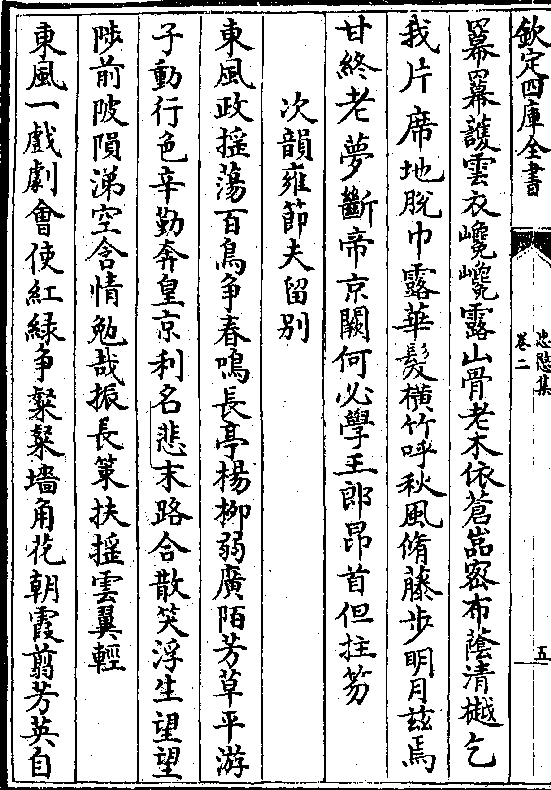 欽定四庫全書
忠愍集
卷二
五
羃羃䕶雲衣巉巉露山骨老木依蒼嵓宻布蔭清樾乞
我片席地脱巾露華髮横竹呼秋風脩藤步明月兹焉
甘終老夢斷帝京闕何必學王郎昂首但拄笏
次韻雍節夫留别
東風政揺蕩百鳥争春鳴長亭楊柳弱廣陌芳草平游
子動行色辛勤奔皇京利名悲末路合散笑浮生望望
陟前陂隕涕空含情勉哉振長策扶揺雲翼輕
東風一戲劇會使紅緑争粲粲墻角花朝霞翦芳英自